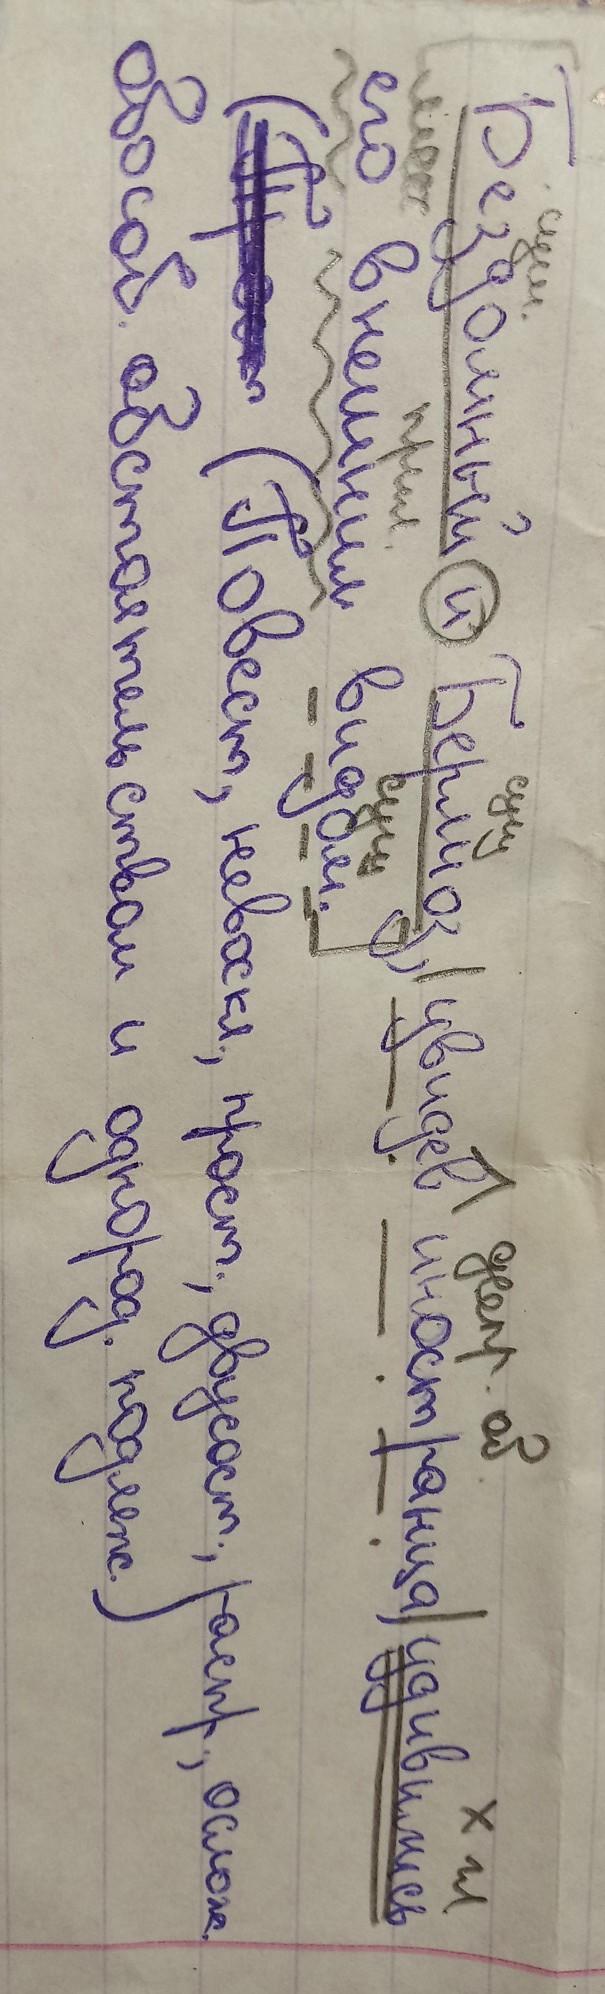 сущ. сущ деепр. об х гл.
Бездомный и Берлиоз, увидев иностранца, удивились
мест прил. сущ
его внешним видом.
(Повест, невоскл., прост., двусост., распр., ослож.
обособ. обстоятельством и однород. подлеж.)